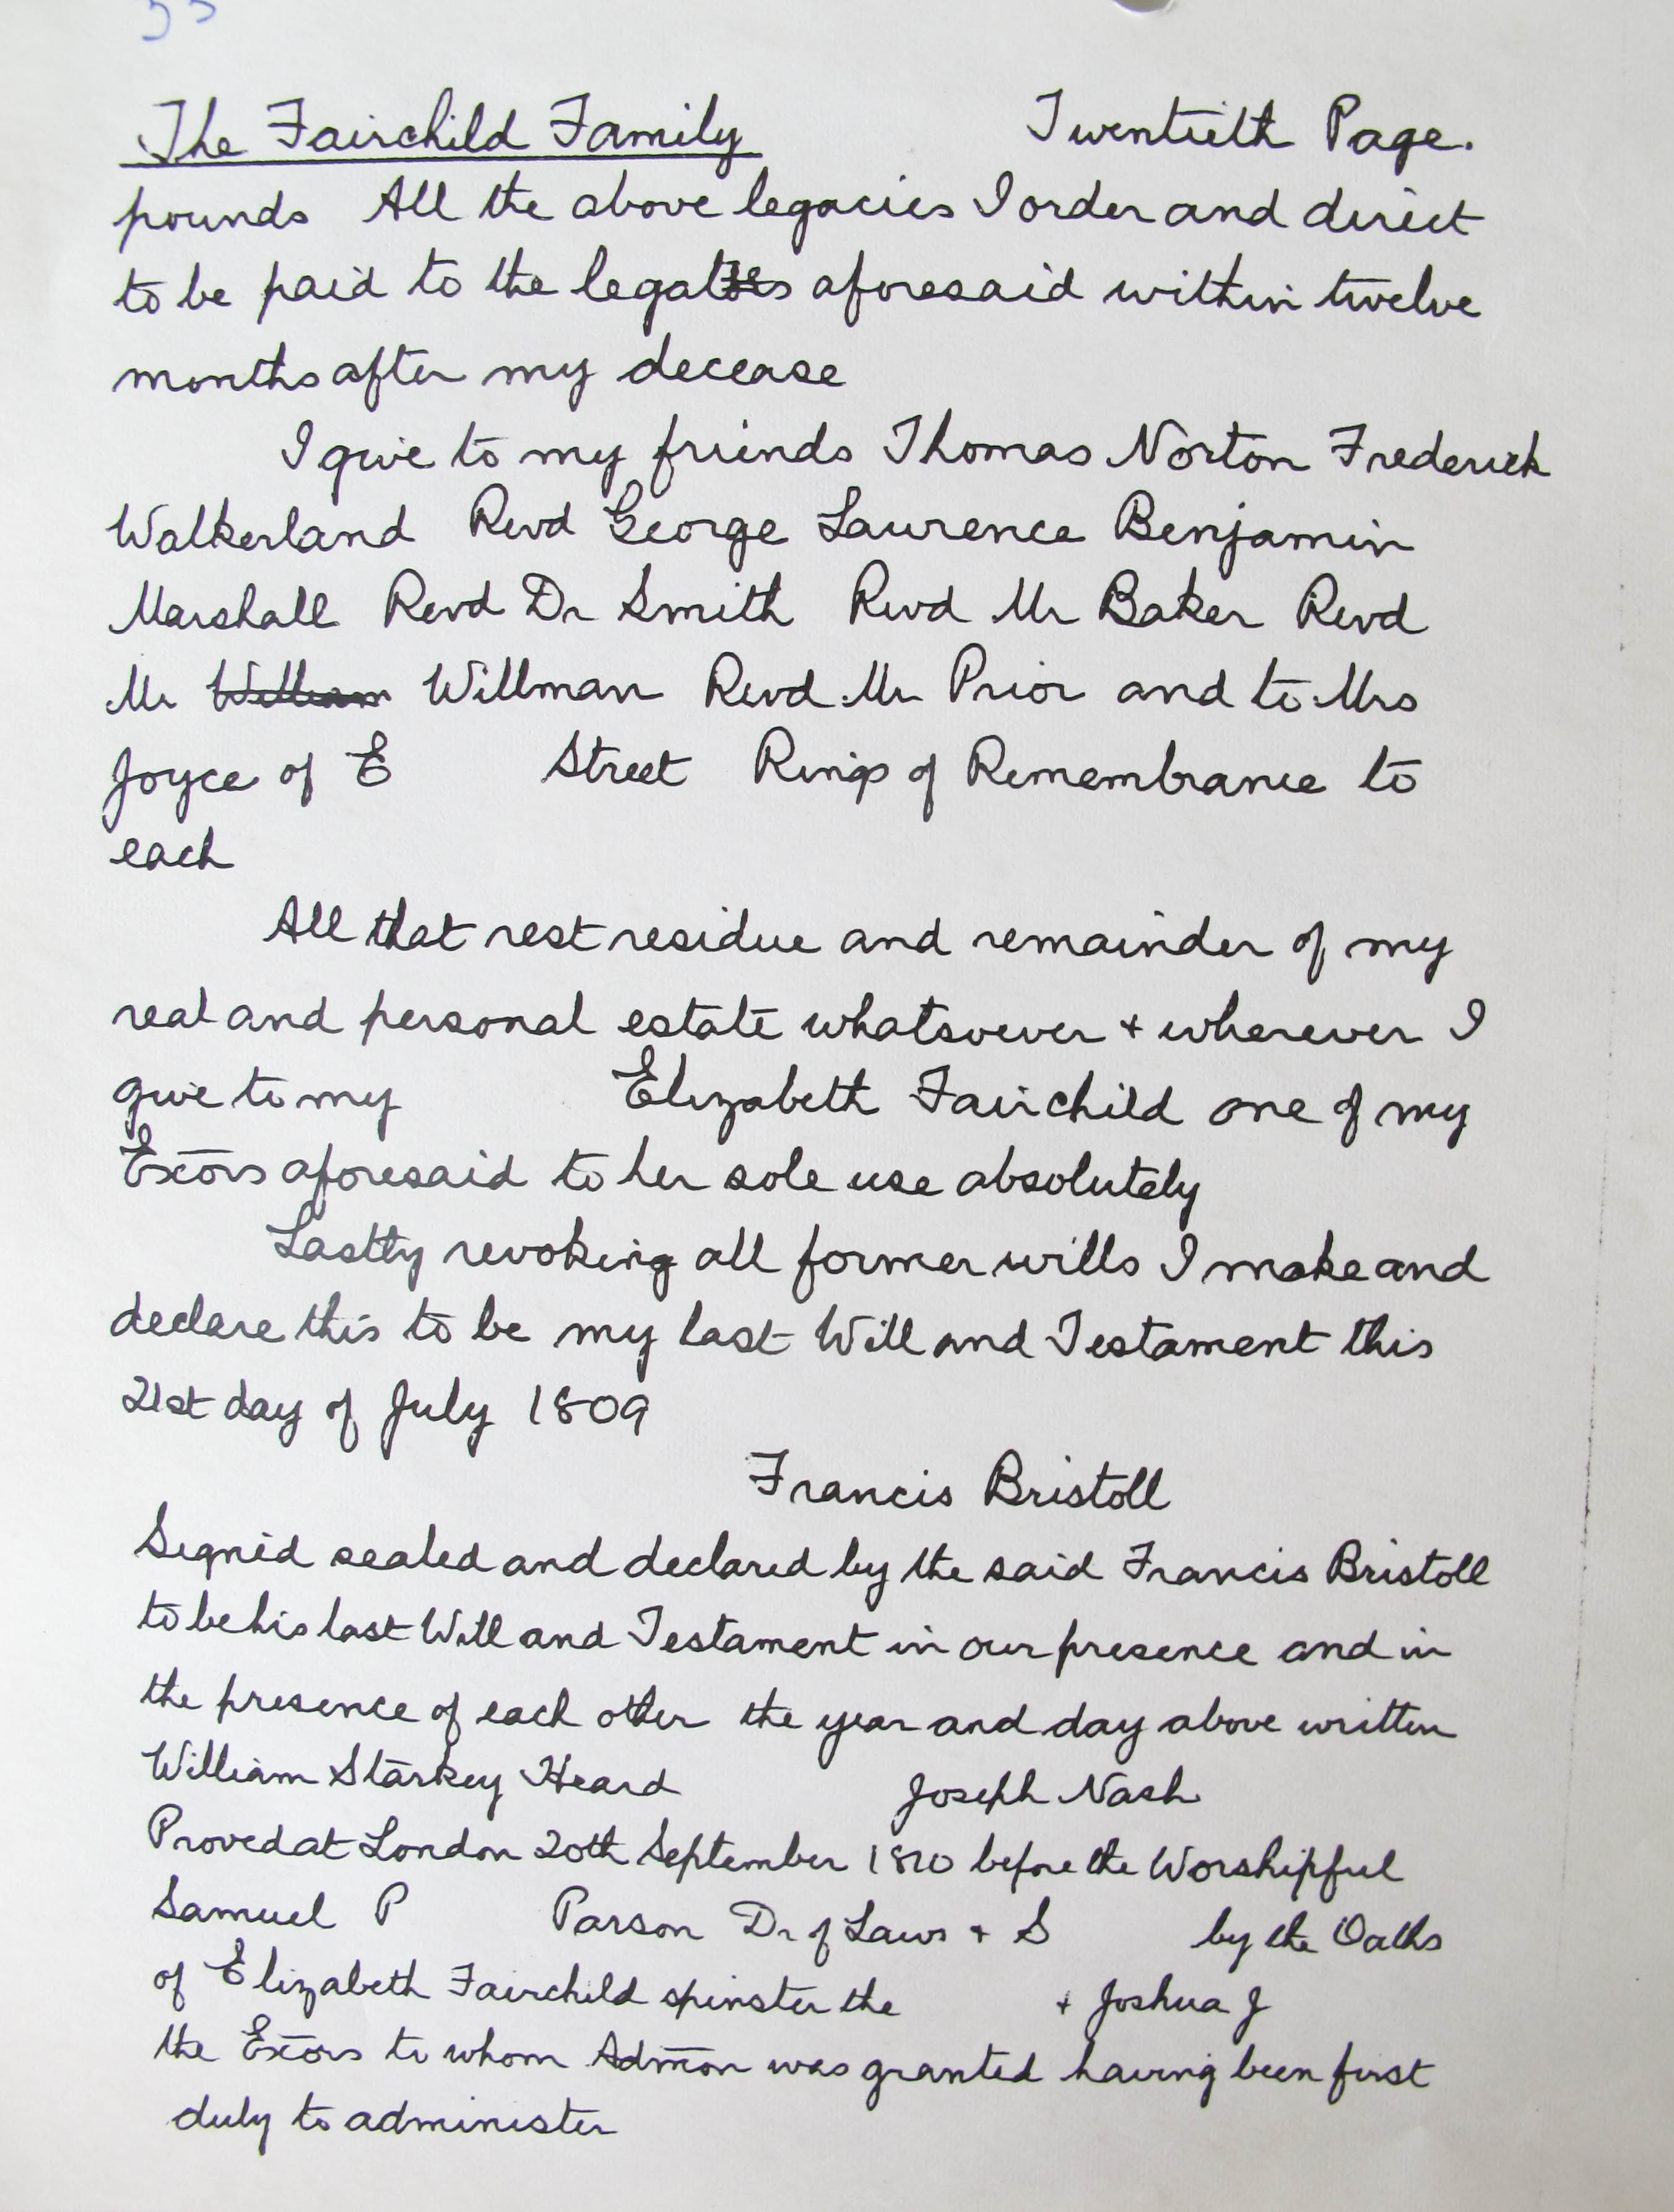 The Fairchild Family Twentieth Page.
pounds All the above legacies I order and direct
to be paid to the legatees aforesaid within twelve
months after my decease
I give to my friends Thomas Norton Frederick
Walkerland Revd George Laurence Benjamin
Marshall Revd Dr Smith Revd Mr Baker Revd
Mr William Willman Revd Mr Prior and to Mrs
Joyce of E Street Rings of Remembrance to
each
All that rest residue and remainder of my
real and personal estate whatsoever + wherever I
give to my Elizabeth Fairchild one of my
Exōrs aforesaid to her sole use absolutely
Lastly revoking all former wills I make and
declare this to be my last Will and Testament this
21st day of July 1809
Francis Bristoll
Signed sealed and declared by the said Francis Bristoll
to be his last Will and Testament in our presence and in
the presence of each other the year and day above written
William Starkey Heard Joseph Nash
Proved at London 20th September 1810 before the Worshipful
Samuel P Parson Dr of Laws + S by the Oaths
of Elizabeth Fairchild spinster the + Joshua J
the Exōrs to whom Admōn was granted having been first
duly to administer